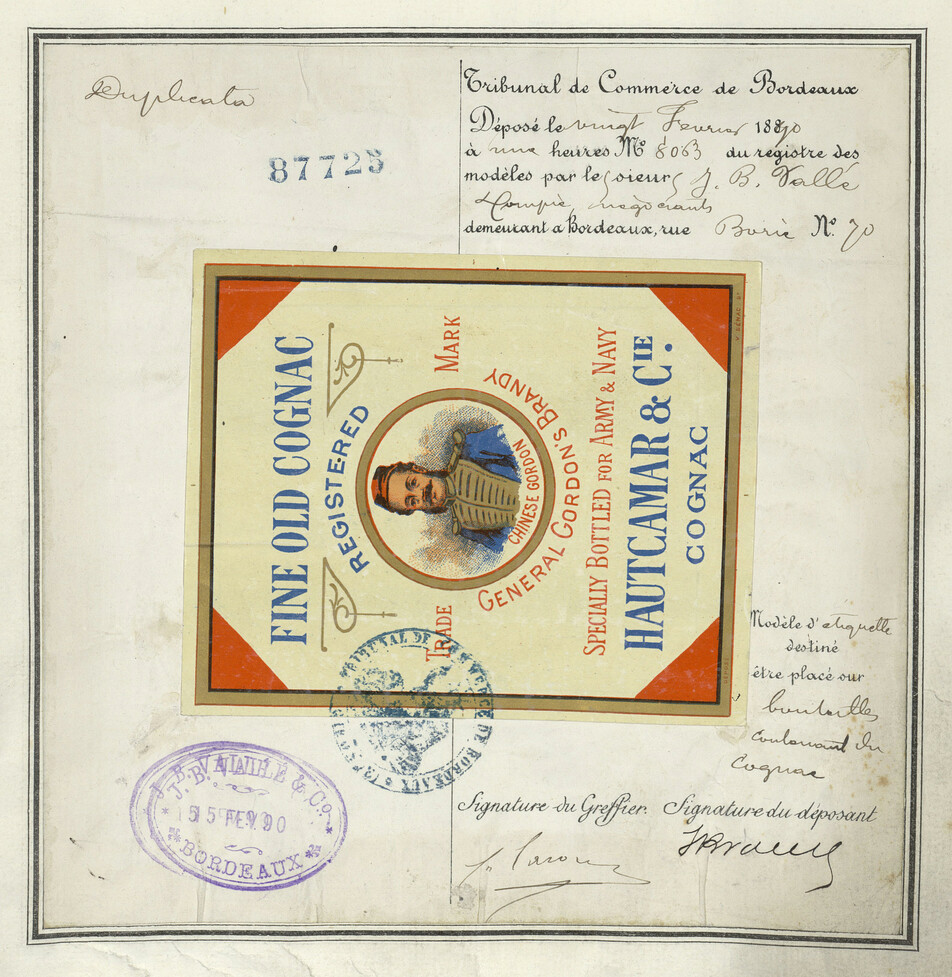 Duplicata
87725
Tribunal de Commerce de Bordeaux
Déposé le vingt Fevrier 1890
à une heures No 8063 du registre des
modèles par le sieur J. B. Vallé
& Compie négociants
demeurant a Bordeaux, rue Borie No. 70
FINE OLD COGNAC
REGISTERED
TRADE MARK
CHINESE GORDON
GENERAL GORDON'S BRANDY
SPECIALLY BOTTLED FOR ARMY & NAVY
HAUTCAMAR & CIE.
COGNAC
Modèle d'etiquette
destiné
être placé sur
bouteilles
contenant du
Cognac
TRIBUNAL DE COMMERCE DE BORDEAUX
J. B. & Co.
15 FEV 90
BORDEAUX
Signature du Greffier. Signature du déposant